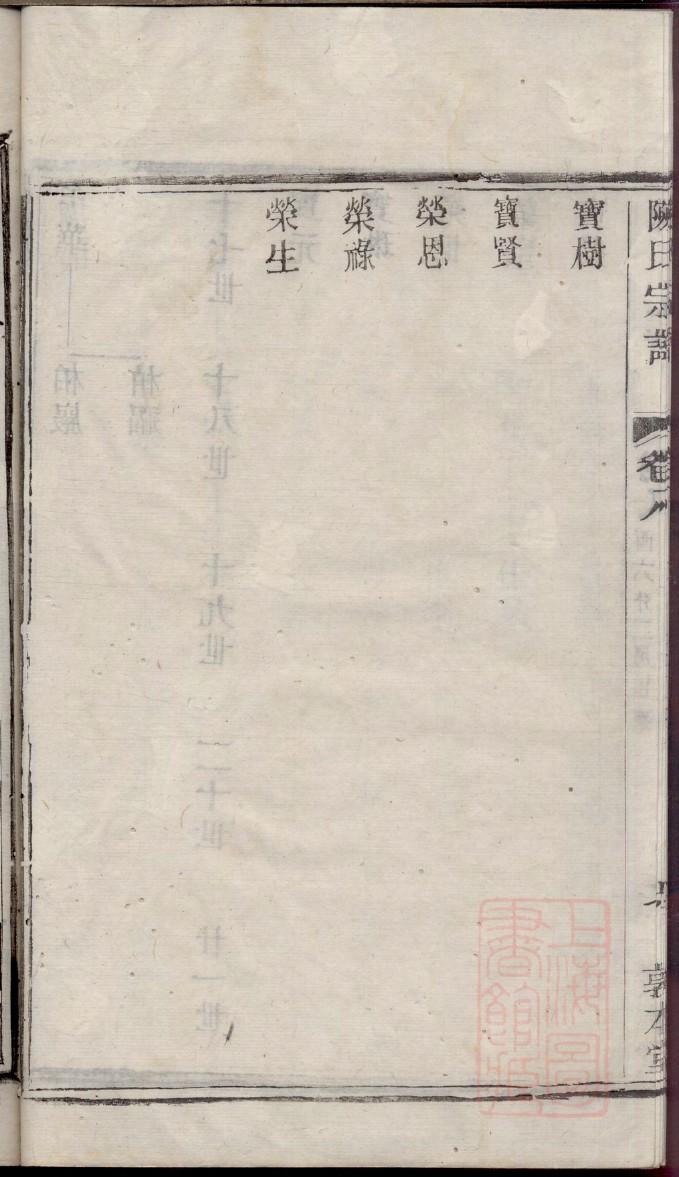 陳氏宗譜
卷八
敦本堂
寶樹
寶賢
榮恩
榮祿
榮生
上海圖書館藏